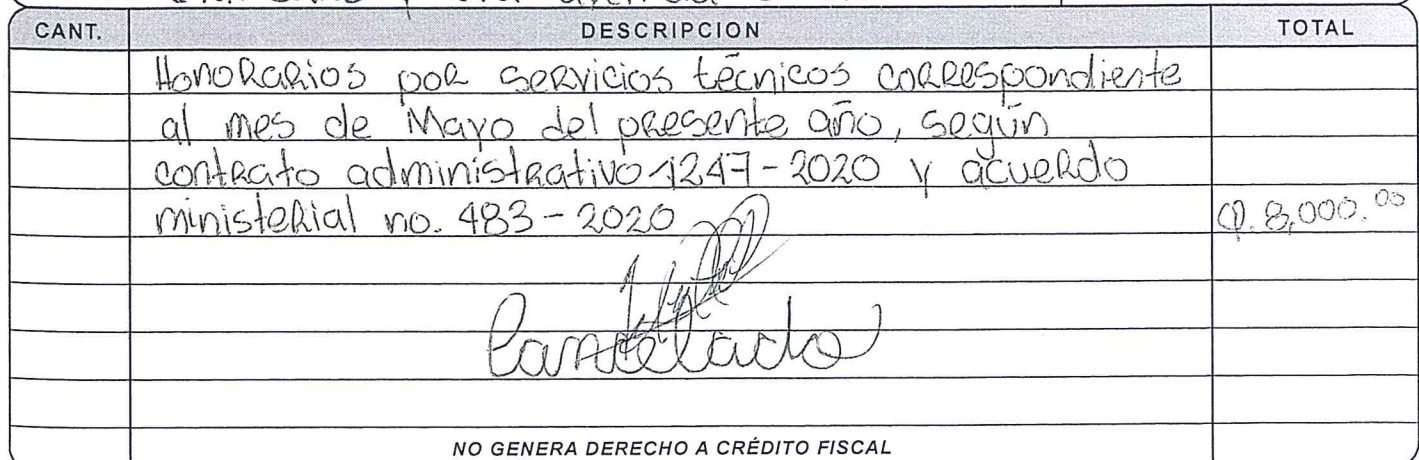 CANT. DESCRIPCION TOTAL
Honorarios por servicios técnicos correspondiente
al mes de Mayo del presente año, según
contrato administrativo 1247-2020 y acuerdo
ministerial no. 483-2020 Q. 8,000.00
Cancelado
NO GENERA DERECHO A CRÉDITO FISCAL